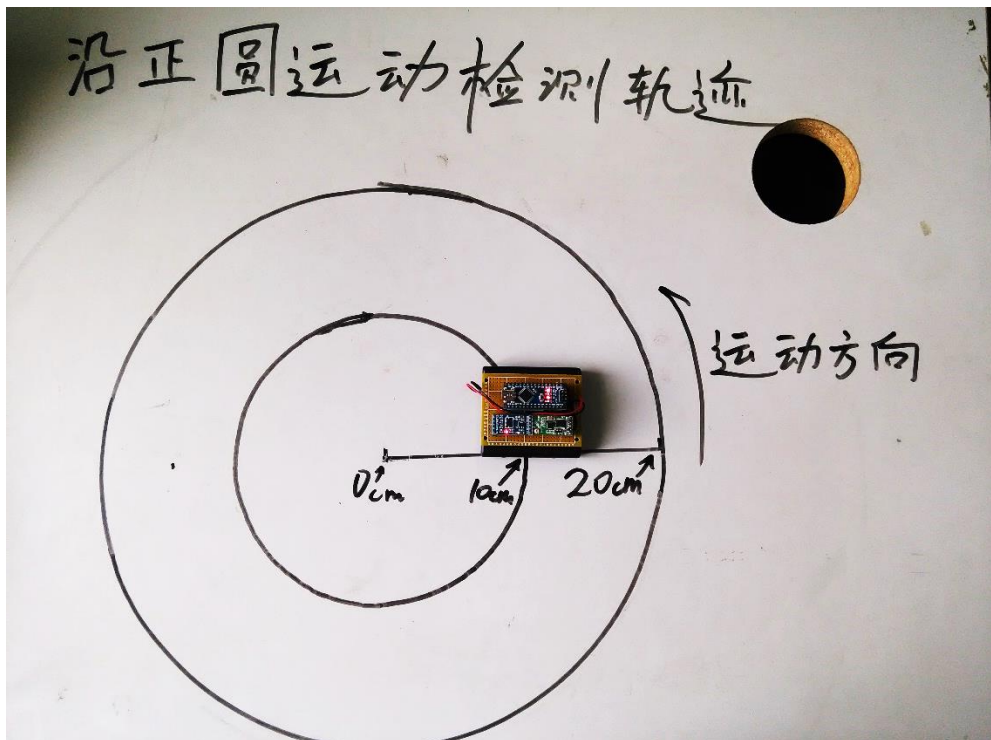 沿正圆运动检测轨迹
运动方向
0cm
10cm
20cm